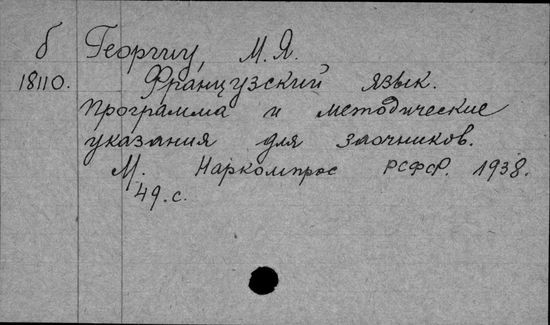 б Георгиу, М.Я.
18110. Французский язык.
Программа и методические
указания для заочников.
М. Наркомпрос РСФСР. 1938.
49.с.